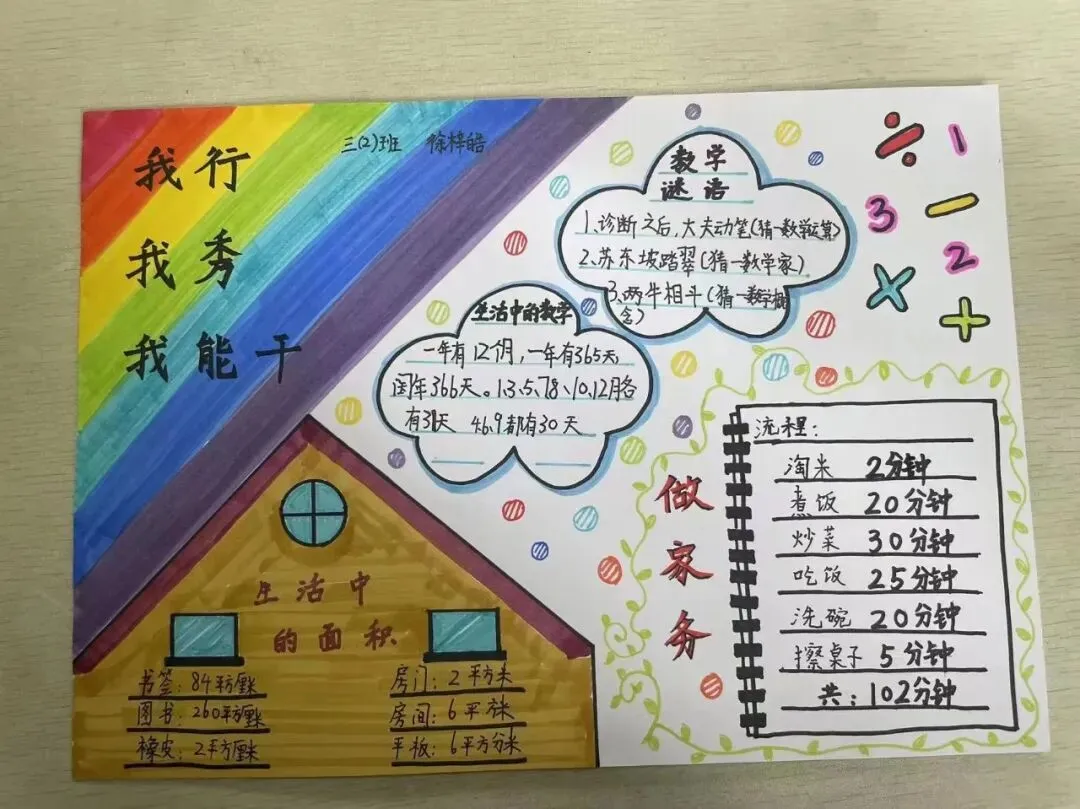 三(2)班 徐梓皓
我行
我秀
我能干
数学
谜语
1.诊断之后,大夫动笔(猜一数学运算)
2、苏东坡踏翠(猜一数学家)
3、两牛相斗(猜一数学概
念)
生活中的数学
一年有12个月,一年有365天,
闰年366天。1.3.5.7.8、10、12月各
有31天 4.6.9都有30天
÷ 1
3 −
× 2
+
生活中
的面积
书签:84平方厘米
图书:260平方厘米
橡皮:2平方厘米
房门:2平方米
房间:6平方米
平板:6平方分米
做
家
务
流程:
淘米 2分钟
煮饭 20分钟
炒菜 30分钟
吃饭 25分钟
洗碗 20分钟
擦桌子 5分钟
共:102分钟